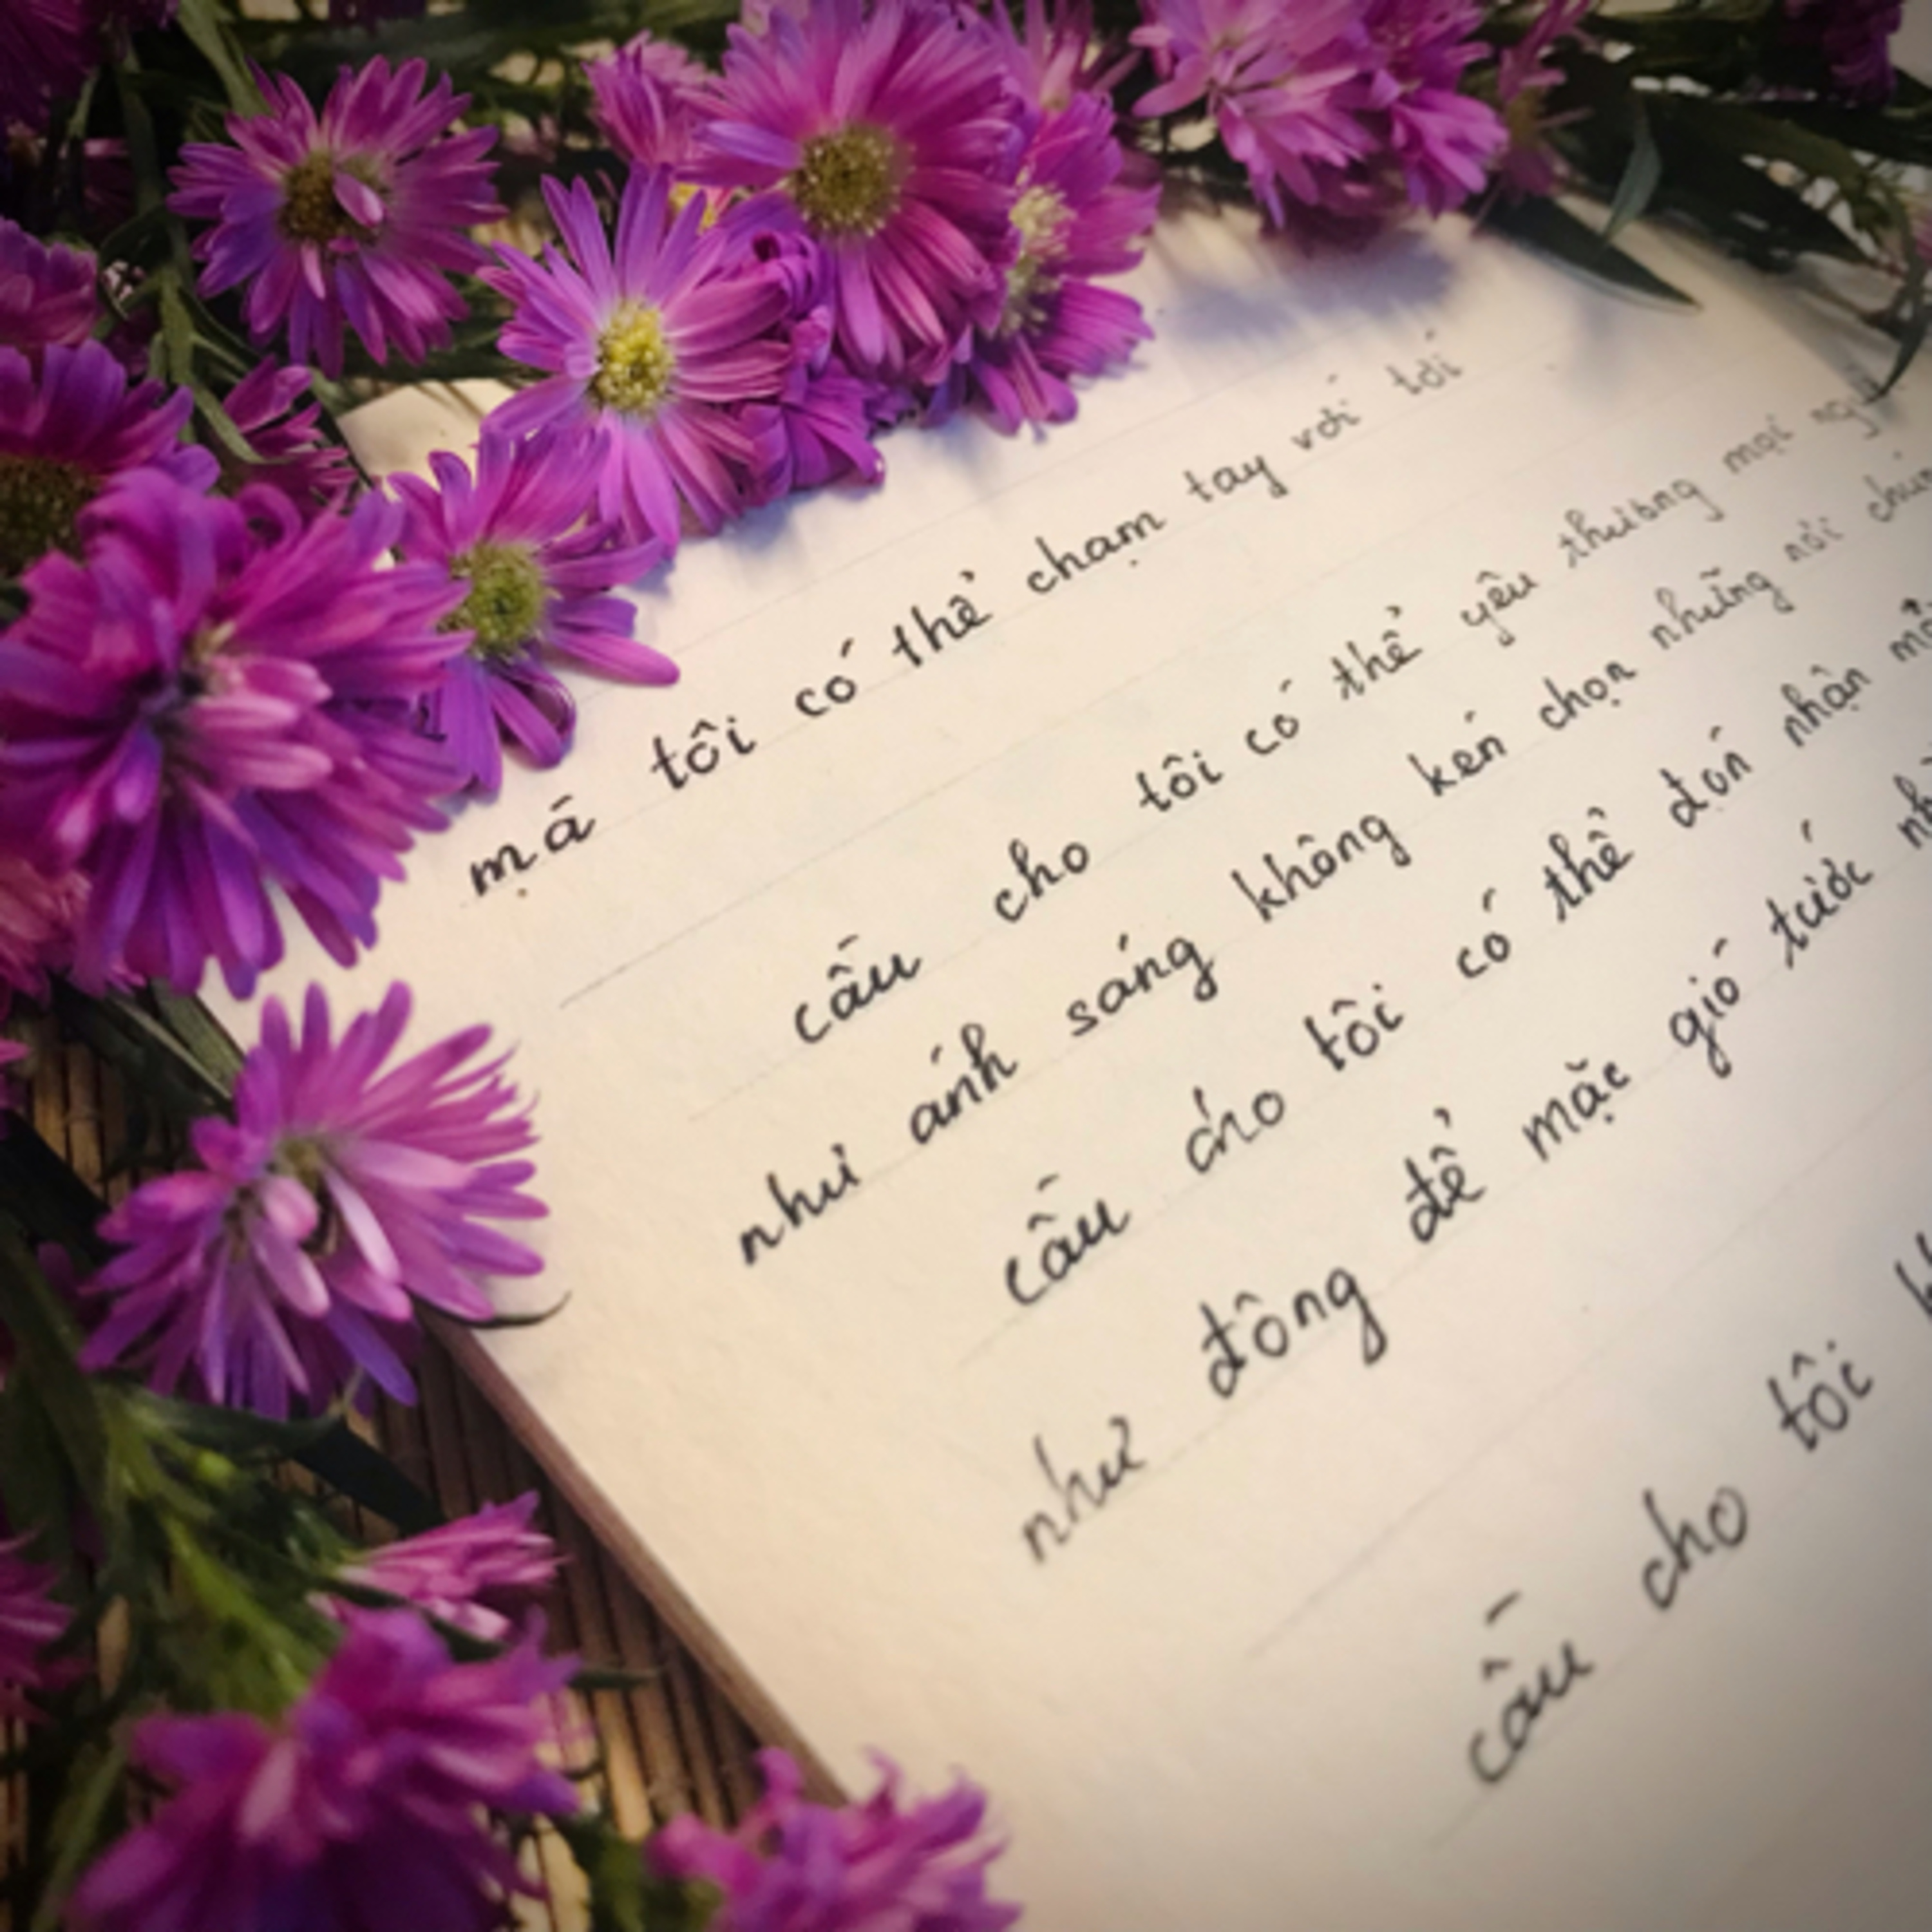 mà tôi có thể chạm tay với tới
cầu cho tôi có thể yêu thương mọi
như ánh sáng không kén chọn những nơi
cầu cho tôi có thể đón nhận
như đồng để mặc gió tước
cầu cho tôi